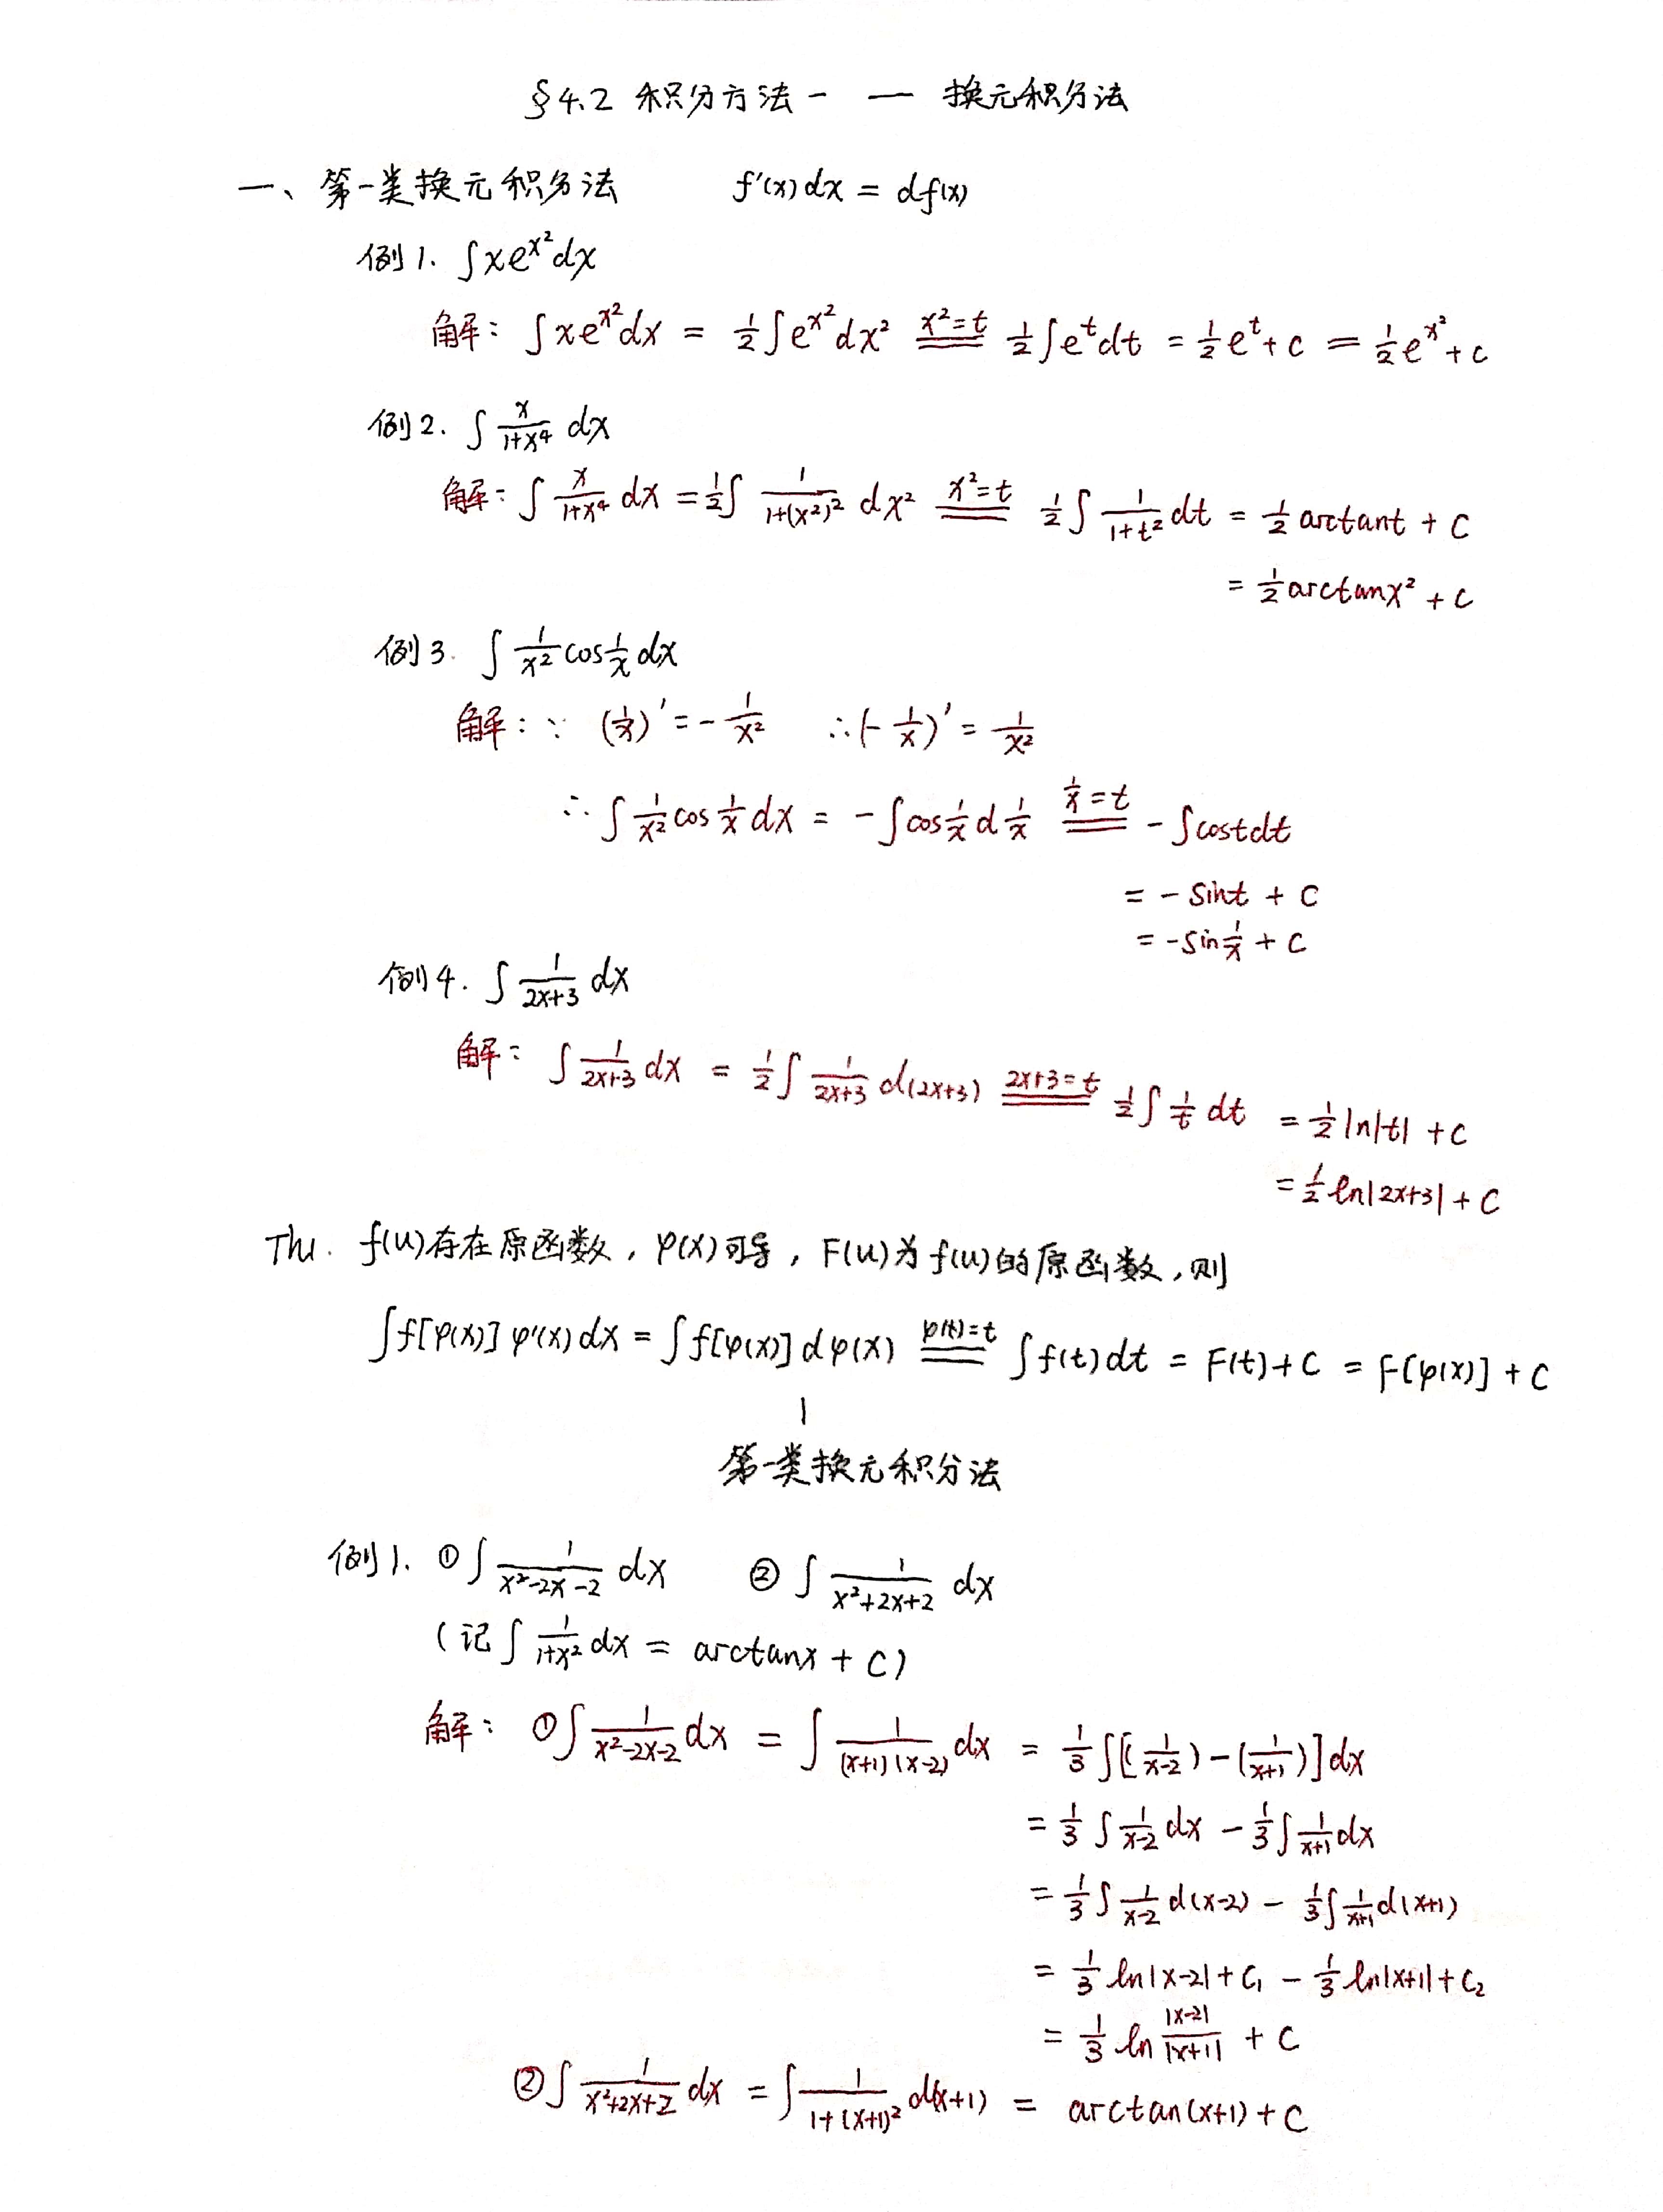 §4.2 积分方法一 — 换元积分法
一、第一类换元积分法 f'(x)dx = df(x)
例1. ∫xe^{x²}dx
解: ∫xe^{x²}dx = ½∫e^{x²}dx² \xlongequal{x²=t} ½∫e^t dt = ½e^t + c = ½e^{x²} + c
例2. ∫ x/(1+x⁴) dx
解: ∫ x/(1+x⁴) dx = ½∫ 1/(1+(x²)²) dx² \xlongequal{x²=t} ½∫ 1/(1+t²) dt = ½ arctant + C
= ½ arctanx² + C
例3. ∫ 1/x² cos 1/x dx
解: ∵ (1/x)' = -1/x² ∴(-1/x)' = 1/x²
∴ ∫ 1/x² cos 1/x dx = -∫cos 1/x d 1/x \xlongequal{1/x=t} -∫costdt
= -sint + C
= -sin 1/x + C
例4. ∫ 1/(2x+3) dx
解: ∫ 1/(2x+3) dx = ½∫ 1/(2x+3) d(2x+3) \xlongequal{2x+3=t} ½∫ 1/t dt = ½ ln|t| + C
= ½ ln|2x+3| + C
Th1. f(u)存在原函数, φ(x)可导, F(u)为f(u)的原函数, 则
∫f[φ(x)]φ'(x)dx = ∫f[φ(x)]dφ(x) \xlongequal{φ(t)=t} ∫f(t)dt = F(t)+C = F[φ(x)] + C
第一类换元积分法
例1. ①∫ 1/(x²-2x-2) dx ②∫ 1/(x²+2x+2) dx
(记∫ 1/(1+x²) dx = arctanx + C)
解: ①∫ 1/(x²-2x-2) dx = ∫ 1/((x+1)(x-2)) dx = 1/3 ∫[(1/(x-2))-(1/(x+1))]dx
= 1/3 ∫ 1/(x-2) dx - 1/3 ∫ 1/(x+1) dx
= 1/3 ∫ 1/(x-2) d(x-2) - 1/3 ∫ 1/(x+1) d(x+1)
= 1/3 ln|x-2| + C₁ - 1/3 ln|x+1| + C₂
= 1/3 ln |x-2|/|x+1| + C
②∫ 1/(x²+2x+2) dx = ∫ 1/(1+(x+1)²) d(x+1) = arctan(x+1) + C